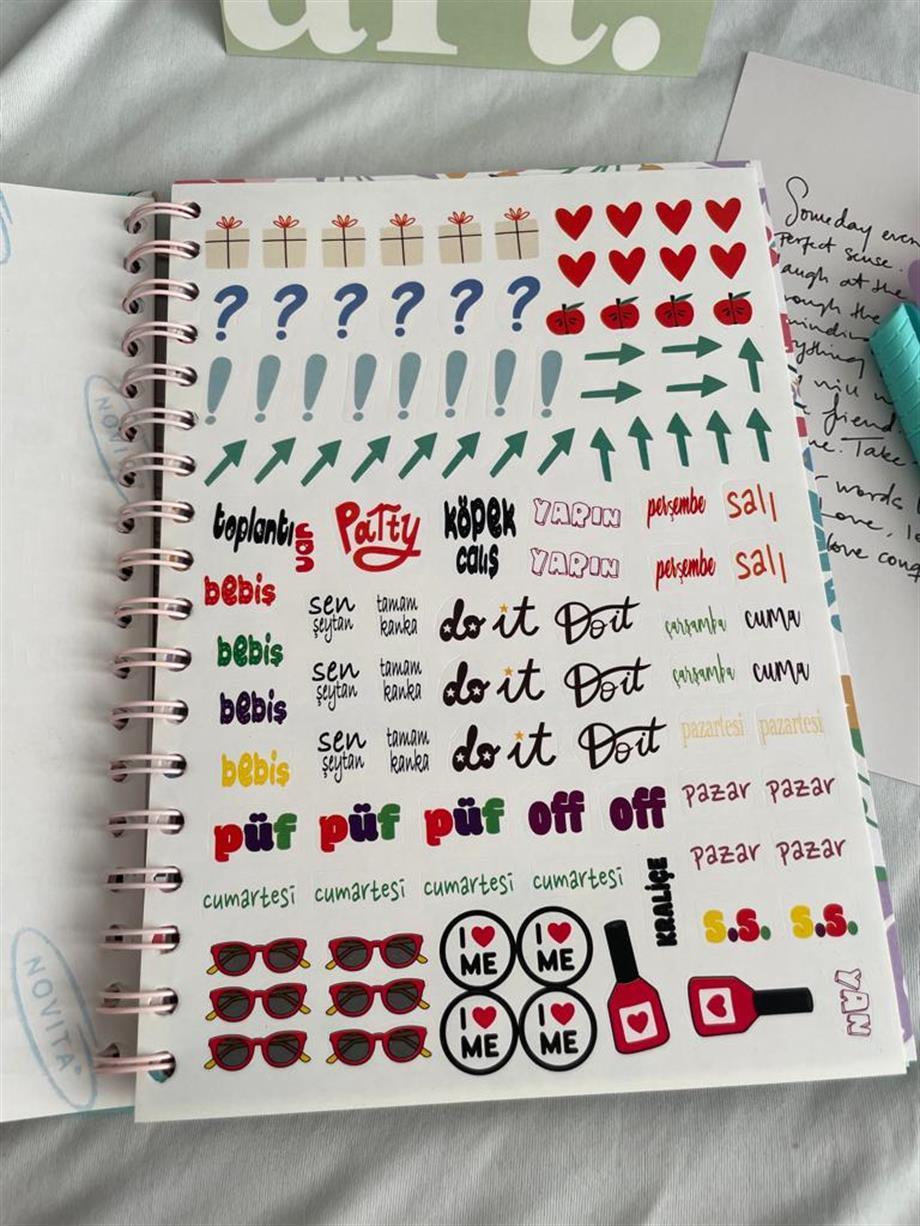 art.
Someday
Perfect sense.
laugh at the
NOVITA
? ? ? ? ? ?
! ! ! ! ! ! ! !
toplantı var
Party
köpek
calış
YARIN
perşembe
salı
YARIN
perşembe
salı
bebiş
sen
şeytan
tamam
kanka
do it
Do it
çarşamba
cuma
bebiş
sen
şeytan
tamam
kanka
do it
Do it
çarşamba
cuma
bebiş
sen
şeytan
tamam
kanka
do it
Do it
pazartesi
pazartesi
bebiş
püf püf püf off off
pazar pazar
pazar pazar
cumartesi cumartesi cumartesi cumartesi
KRALİÇE
s.s. s.s.
I ME
I ME
I ME
I ME
YAN
NOVITA
friend.
Take
words
love